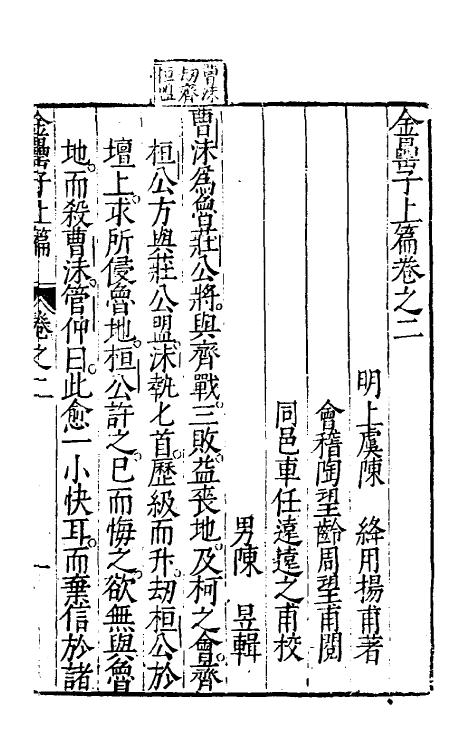 金罍子上篇卷之二
明上虞陳　絳用揚甫著
會稽陶望齡周望甫閱
同邑車任遠遠之甫校
男陳　昱輯
曹沬劫齊桓盟
曹沬為魯莊公將與齊戰三敗益喪地及柯之會齊
桓公方與莊公盟沬執匕首歷級而升劫桓公於
壇上求所侵魯地桓公許之已而悔之欲無與魯
地而殺曹沬管仲曰此愈一小快耳而棄信於諸
金罍子上篇　卷之二　一